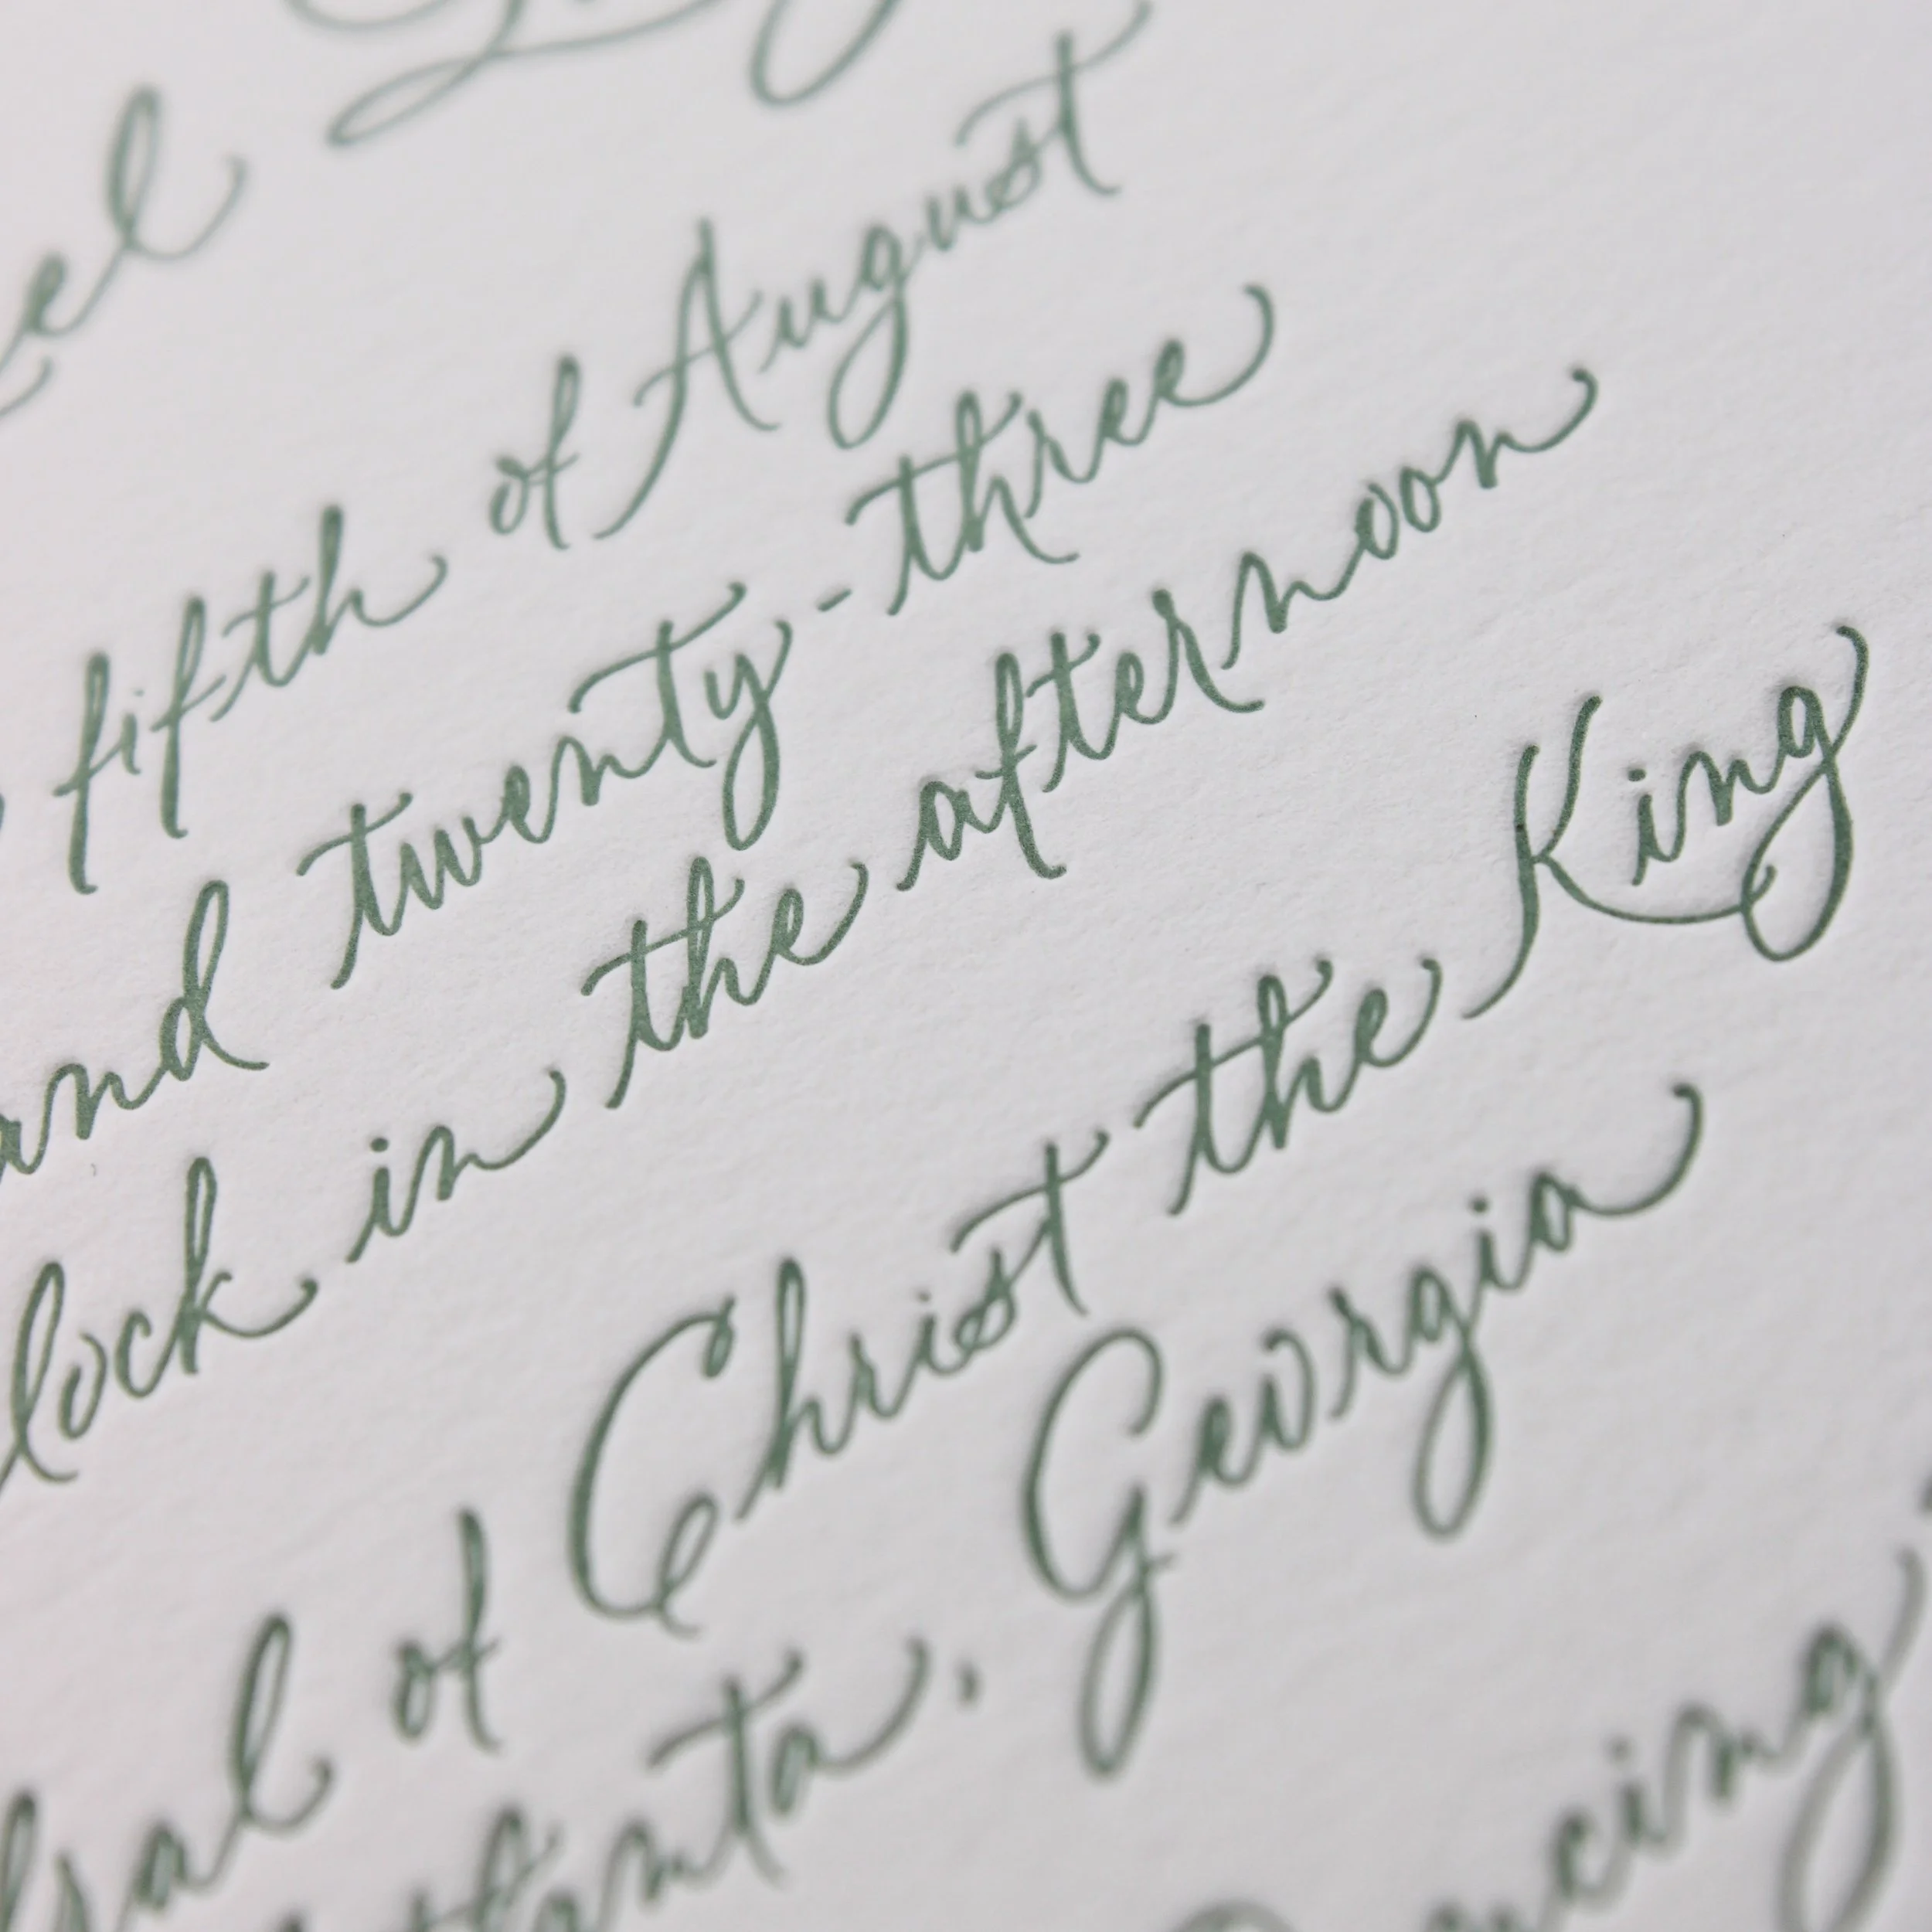 fifth of August
and twenty-three
lock in the afternoon
of Christ the King
Georgia